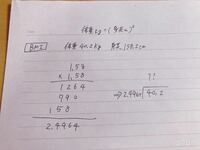 体重kg÷(身長m)²
BMI 体重 40.2kg 身長 158.2cm
1.58
× 1.58
1264
790
158
2.4964
??
⇒2.4964)40.2